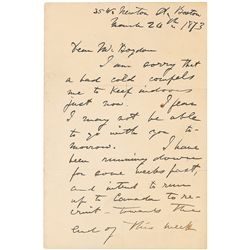 Newton St, Boston
March 20th, 1873
Dear Mr. Bogdon
I am sorry that
a bad cold compels
me to keep indoors
just now. I fear
I may not be able
to go with you to-
morrow. I have
been running down
for some weeks past,
and intend to run
up to Canada to re-
cruit - towards the
end of this week